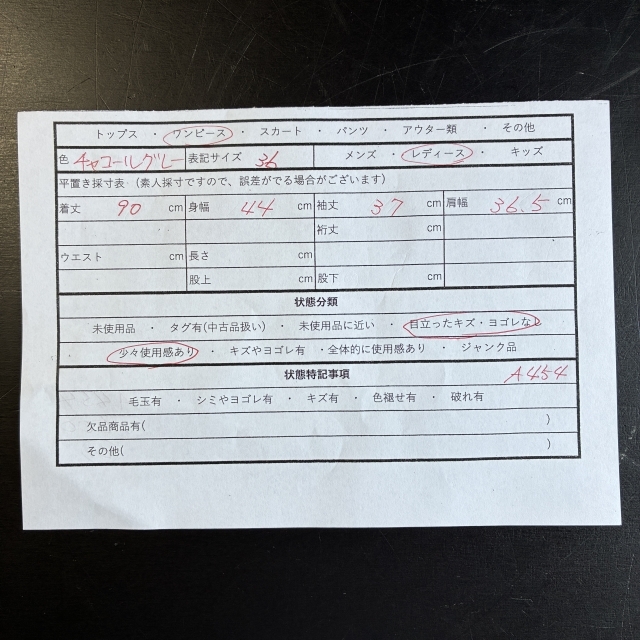 トップス ・ ワンピース ・ スカート ・ パンツ ・ アウター類 ・ その他
色 チャコールグレー 表記サイズ 36 メンズ ・ レディース ・ キッズ
平置き採寸表 (素人採寸ですので、誤差がでる場合がございます)
着丈 90 cm 身幅 44 cm 袖丈 37 cm 肩幅 36.5 cm
裄丈 cm
ウエスト cm 長さ cm
股上 cm 股下 cm
状態分類
未使用品 ・ タグ有(中古品扱い) ・ 未使用品に近い ・ 目立ったキズ・ヨゴレなし
・ 少々使用感あり ・ キズやヨゴレ有 ・全体的に使用感あり ・ ジャンク品
状態特記事項 A454
毛玉有 ・ シミやヨゴレ有 ・ キズ有 ・ 色褪せ有 ・ 破れ有
欠品商品有( )
その他( )